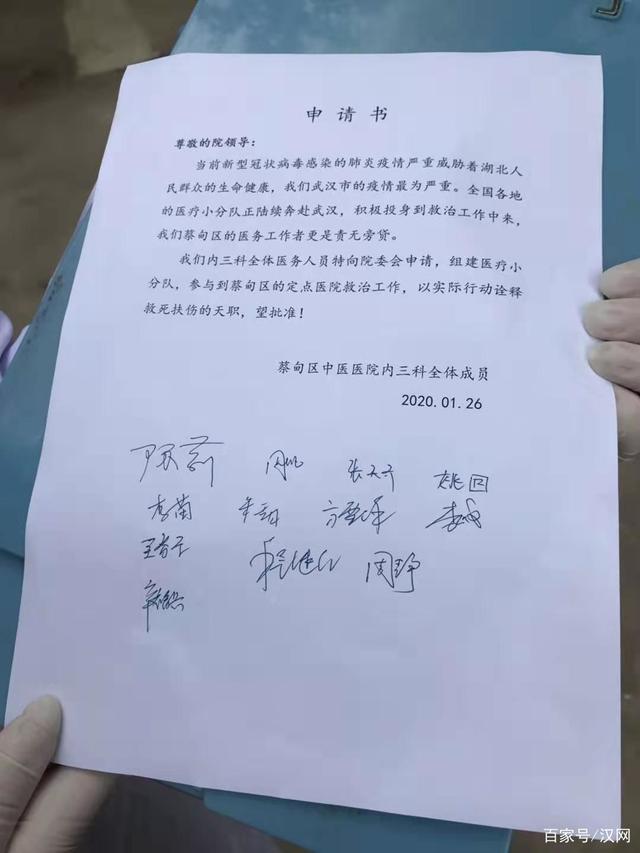 申请书
尊敬的院领导：
当前新型冠状病毒感染的肺炎疫情严重威胁着湖北人
民群众的生命健康，我们武汉市的疫情最为严重。全国各地
的医疗小分队正陆续奔赴武汉，积极投身到救治工作中来，
我们蔡甸区的医务工作者更是责无旁贷。
我们内三科全体医务人员特向院委会申请，组建医疗小
分队，参与到蔡甸区的定点医院救治工作，以实际行动诠释
救死扶伤的天职，望批准！
蔡甸区中医医院内三科全体成员
2020.01.26
李菌
周静
百家号/汉网